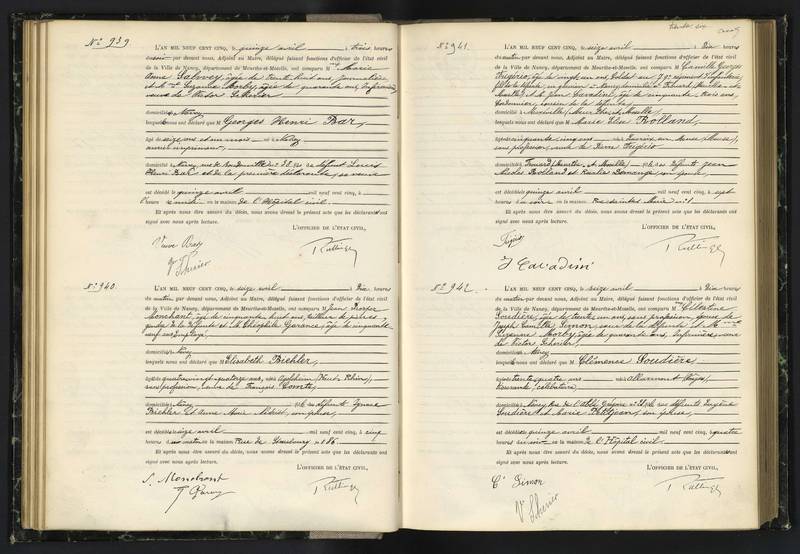 N° 939.
L'AN MIL NEUF CENT CINQ, le quinze avril à trois heures
du soir par devant nous, Adjoint au Maire, délégué faisant fonctions d'officier de l'état civil
de la Ville de Nancy, département de Meurthe-et-Moselle, ont comparu M Marie
Anne Salovey, âgée de trente huit ans, Journalière
et M Suzanne Morly, âgée de quarante ans, Infirmière
veuve de Victor Scherier
domiciliés Nancy
lesquels nous ont déclaré que M Georges Henri Bar,
âgé de seize ans et un mois né à Nancy
ouvrier imprimeur,
domicilié à Nancy, rue de n° 38, fils de défunt Louis
Henri Bar et de la première déclarante, sa veuve
est décédé le quinze avril mil neuf cent cinq, à
heure en la maison de l'Hôpital civil.
Et après nous être assuré du décès, nous avons dressé le présent acte que les déclarants ont
signé avec nous après lecture.
L'OFFICIER DE L'ÉTAT CIVIL,
Veuve Bar
Ve Scherier
N° 940.
L'AN MIL NEUF CENT CINQ, le seize avril à Dix heures
du matin par devant nous, Adjoint au Maire, délégué faisant fonctions d'officier de l'état civil
de la Ville de Nancy, département de Meurthe-et-Moselle, ont comparu M Jean Prosper
Monchant, âgé de cinquante huit ans, tailleur de pierres,
gendre de la défunte et M Théophile Garance, âgé de cinquante
neuf ans, Employé
domiciliés Nancy
lesquels nous ont déclaré que M Elisabeth Biehler,
âgée de quatre vingt quatorze ans, née à (Haut Rhin),
sans profession, veuve de François Comte,
domiciliée à Nancy fille des défunts Ignace
Biehler et Anne Marie son épouse,
est décédée seize avril mil neuf cent cinq, à cinq
heures du matin en la maison Rue de Strasbourg n° 86.
Et après nous être assuré du décès, nous avons dressé le présent acte que les déclarants ont
signé avec nous après lecture.
L'OFFICIER DE L'ÉTAT CIVIL,
N° 941.
L'AN MIL NEUF CENT CINQ, le seize avril à Dix heures
du matin par devant nous, Adjoint au Maire, délégué faisant fonctions d'officier de l'état civil
de la Ville de Nancy, département de Meurthe-et-Moselle, ont comparu M Camille Georges
Frigério, âgé de vingt un ans, Soldat au 79e régiment d'Infanterie,
fils de la défunte en garnison à Nancy, domicilié à Frouard (Meurthe et
Moselle) et M Jean Cavadini, âgé de cinquante trois ans,
Cordonnier, cousin de la défunte
domicilié à Maxéville (Meurthe et Moselle)
lesquels nous ont déclaré que M Marie Rolland,
âgée de cinquante cinq ans née à (Meuse),
sans profession, veuve de Pierre Frigério
domiciliée à Frouard (Meurthe et Moselle) fille des défunts Jean
Nicolas Rolland et Rosalie Demange son épouse,
est décédée quinze avril mil neuf cent cinq, à sept
heures du soir en la maison
Et après nous être assuré du décès, nous avons dressé le présent acte que les déclarants ont
signé avec nous après lecture.
L'OFFICIER DE L'ÉTAT CIVIL,
J Cavadini
N° 942.
L'AN MIL NEUF CENT CINQ, le seize avril à Dix heures
du matin par devant nous, Adjoint au Maire, délégué faisant fonctions d'officier de l'état civil
de la Ville de Nancy, département de Meurthe-et-Moselle, ont comparu M Célestine
Soudière, âgée de trente un ans, sans profession, épouse de
Joseph Camille Simon, soeur de la défunte et M
Suzanne Morly, âgée de quarante ans, Infirmière, veuve
de Victor Scherier,
domiciliés Nancy
lesquelles nous ont déclaré que M Clémence Soudière,
âgée de trente quatre ans née à Allarmont (Vosges),
célibataire,
domiciliée à Nancy, rue de l'abbé Grégoire fille des défunts Eugène
Soudière et Marie Petitjean, son épouse,
est décédée quinze avril mil neuf cent cinq, à quatre
heures du soir en la maison de l'Hôpital civil.
Et après nous être assuré du décès, nous avons dressé le présent acte que les déclarants ont
signé avec nous après lecture.
L'OFFICIER DE L'ÉTAT CIVIL,
Ce Simon
Ve Scherier